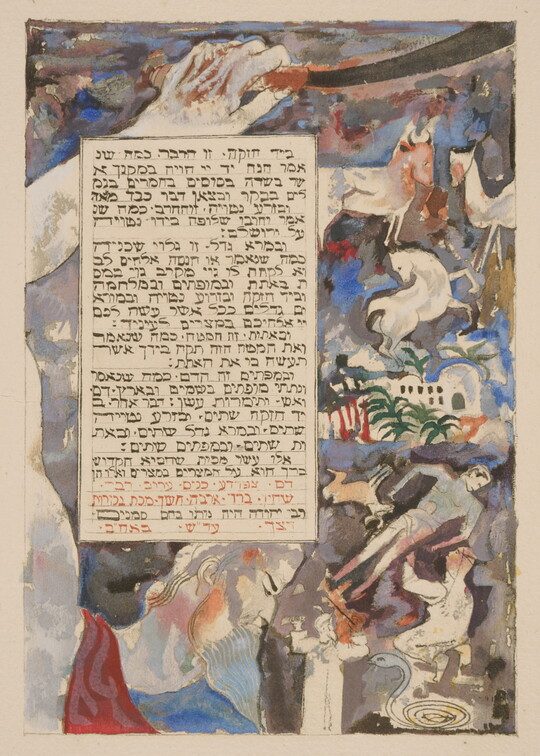 ביד חזקה · זו הדבר · כמה שנ
אמר הנה יד יי הויה במקנך א
שר בשדה בסוסים בחמרים בגמ
לים בבקר ובצאן דבר כבד מאד
ובזרע נטויה · זו החרב · כמה שנ
אמר וחרבו שלופה בידו נטויה
על ירושלם :
ובמרא גדל · זו גלוי שכינה
כמה שנאמר או הנסה אלהים לב
וא לקחת לו גוי מקרב גוי במס
ת באתת ובמופתים ובמלחמה
וביד חזקה ובזרוע נטויה ובמורא
ים גדלים ככל אשר עשה לכם
יי אלהיכם במצרים לעיניך :
ובאתות · זה המטה · כמה שנאמר
ואת המטה הזה תקח בידך אשר
תעשה בו את האתת :
ובמפתים זה הדם · כמה שנאמ
ונתתי מופתים בשמים ובארץ · דם
ואש · ותימרות עשן : דבר אחר · ב
יד חזקה שתים · ובזרע נטויה
שתים · ובמרא גדל שתים · ובאת
ות שתים · ובמפתים שתים :
אלו עשר מכות שהביא הקדוש
ברך הוא על המצרים במצרים ואלו הן
דם · צפרדע · כנים · ערוב · דבר ·
שחין · ברד · ארבה · חשך · מכת בכורות
רבי יהודה היה נותן בהם סמנים
דצך · עד״ש · באח״ב ·